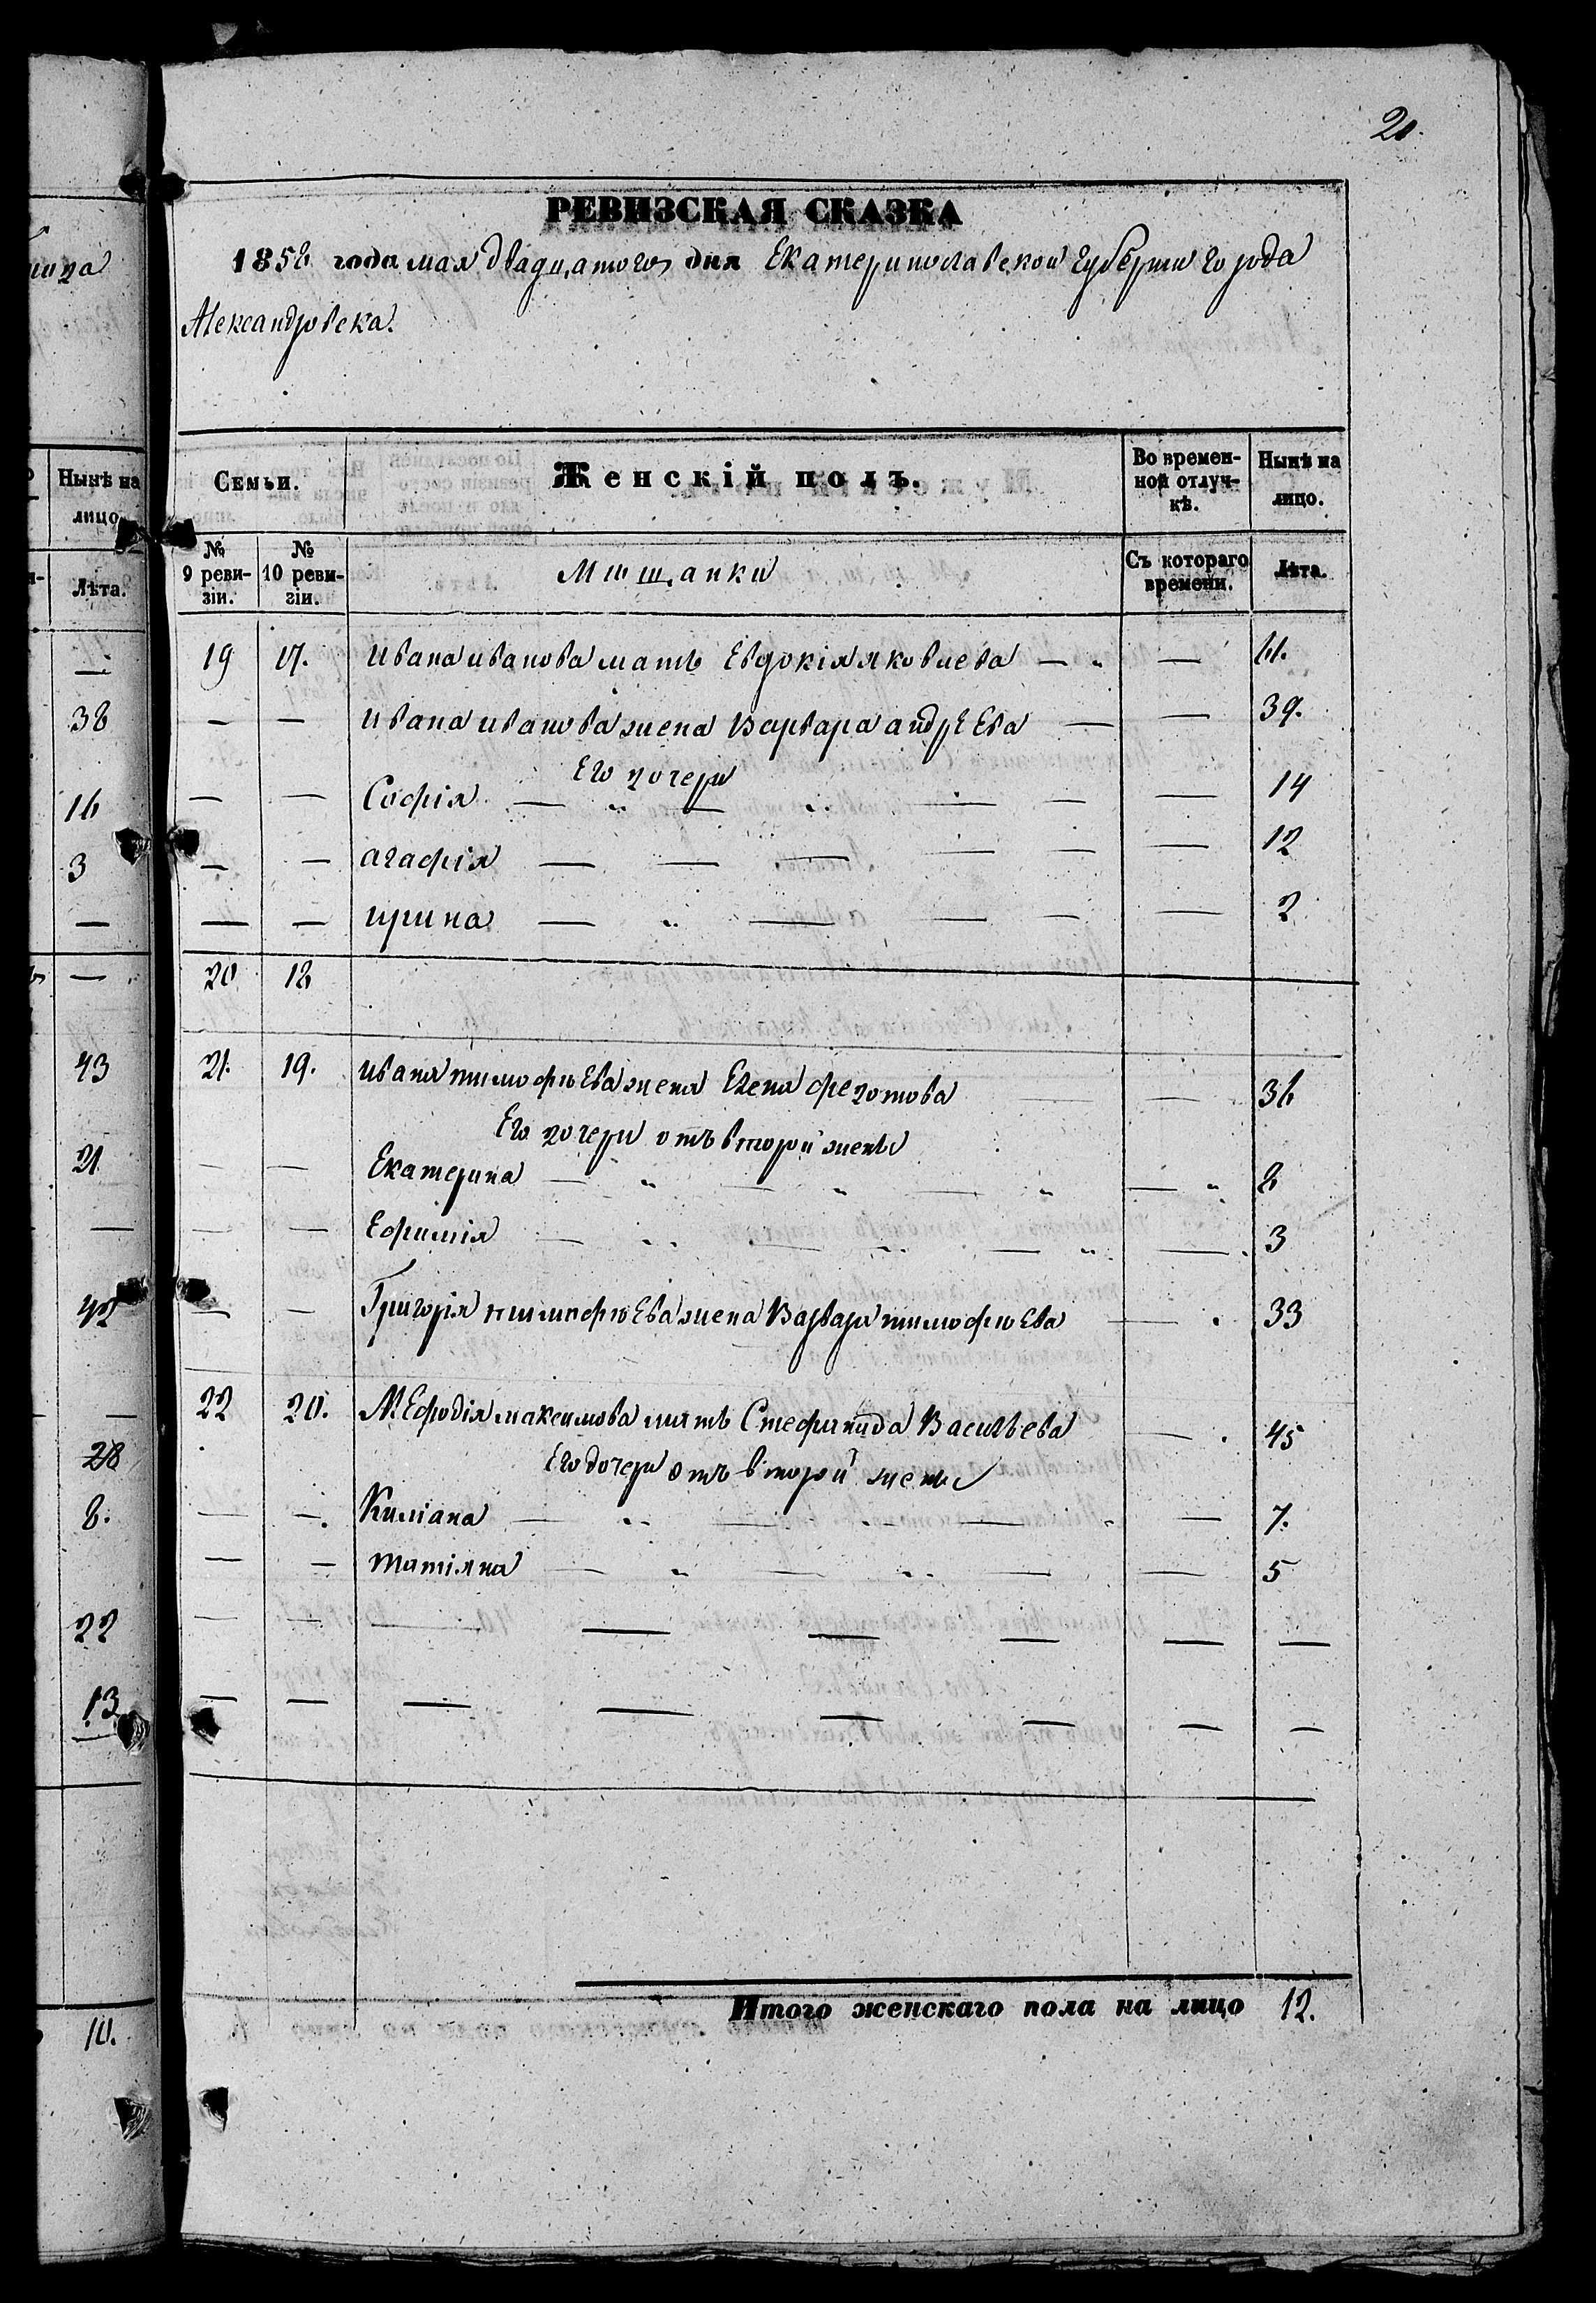 20.
РЕВИЗСКАЯ СКАЗКА
1858 года мая двадцатого дня Екатеринославской губернии города
Александровска.
Семьи.
Женскій полъ.
Во времен-
ной отлуч-
кѣ.
Нынѣ на
лицо.
№ 9 реви-
зіи.
№ 10 реви-
зіи.
Мѣщанки
Съ котораго
времени.
Лѣта.
19 17. Ивана иванова мать Евдокія яковлева — — 61.
— — Ивана иванова жена Варвара андрЕЕва — — 39.
Его дочери
— — Софія — — — — — — 14
— — агафія — — — — — — 12
— — ирина — — — — — 2
20 18
21. 19. ивана тимофѣЕва жена Елена федотова — — 36
Его дочери отъ второй жены
— — Екатерина — — — — 8
— — Ефимія — — — — 3
— — Григорія тимофѣЕва жена Варвара тимофѣЕва — 33
22 20. МЕфодія максимова мать Стефанида Васильева — 45
Его дочери отъ второй жены
— — Киліана — — — — 7.
— — татіяна — — — — 5
— — — — — — — —
— — — — — — — —
Итого женскаго пола на лицо 12.
Нынѣ на
лицо
Лѣта.
—
38
16
3
—
—
43
21
—
42
—
28
8.
22
13
10.